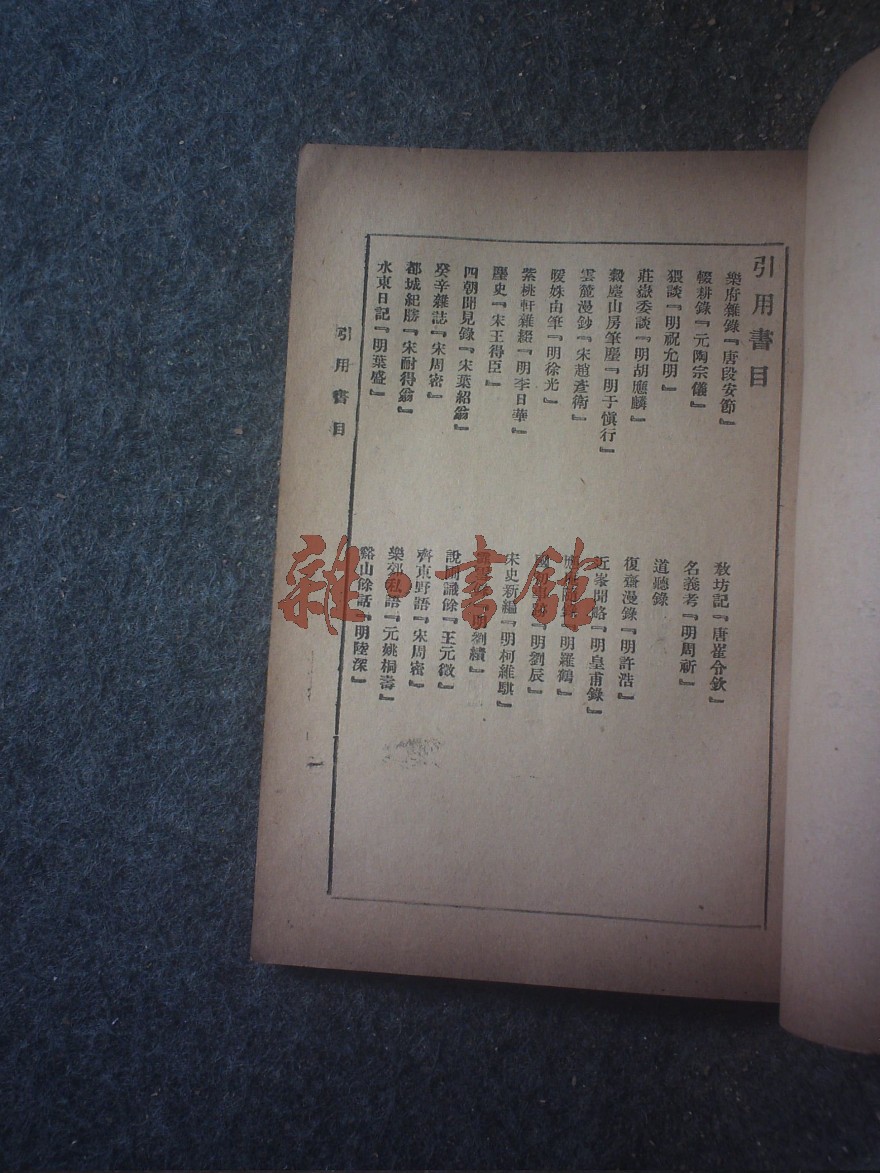 引用書目
樂府雜錄『唐段安節』
輟耕錄『元陶宗儀』
猥談『明祝允明』
莊嶽委談『明胡應麟』
穀塵山房筆塵『明于愼行』
雲麓漫鈔『宋趙彥衛』
暖姝由筆『明徐光』
紫桃軒雜綴『明李日華』
麈史『宋王得臣』
四朝聞見錄『宋葉紹翁』
癸辛雜誌『宋周密』
都城紀勝『宋耐得翁』
水東日記『明葉盛』
敎坊記『唐崔令欽』
名義考『明周祈』
道聽錄
復齋漫錄『明許浩』
近峯聞略『明皇甫錄』
隨錄『明羅鶴』
國初『明劉辰』
宋史新編『明柯維騏』
『明劉績』
說圃識餘『王元微』
齊東野語『宋周密』
樂郊私語『元姚桐壽』
谿山餘話『明陸深』
引用書目
一
雜·書館